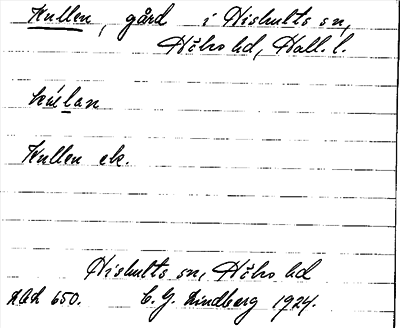 Kullen, gård i Hishults sn,
Höks hd, Hall. l.
Kullen ek.
Hishults sn, Höks hd
650. C. G. Lindberg 1924.